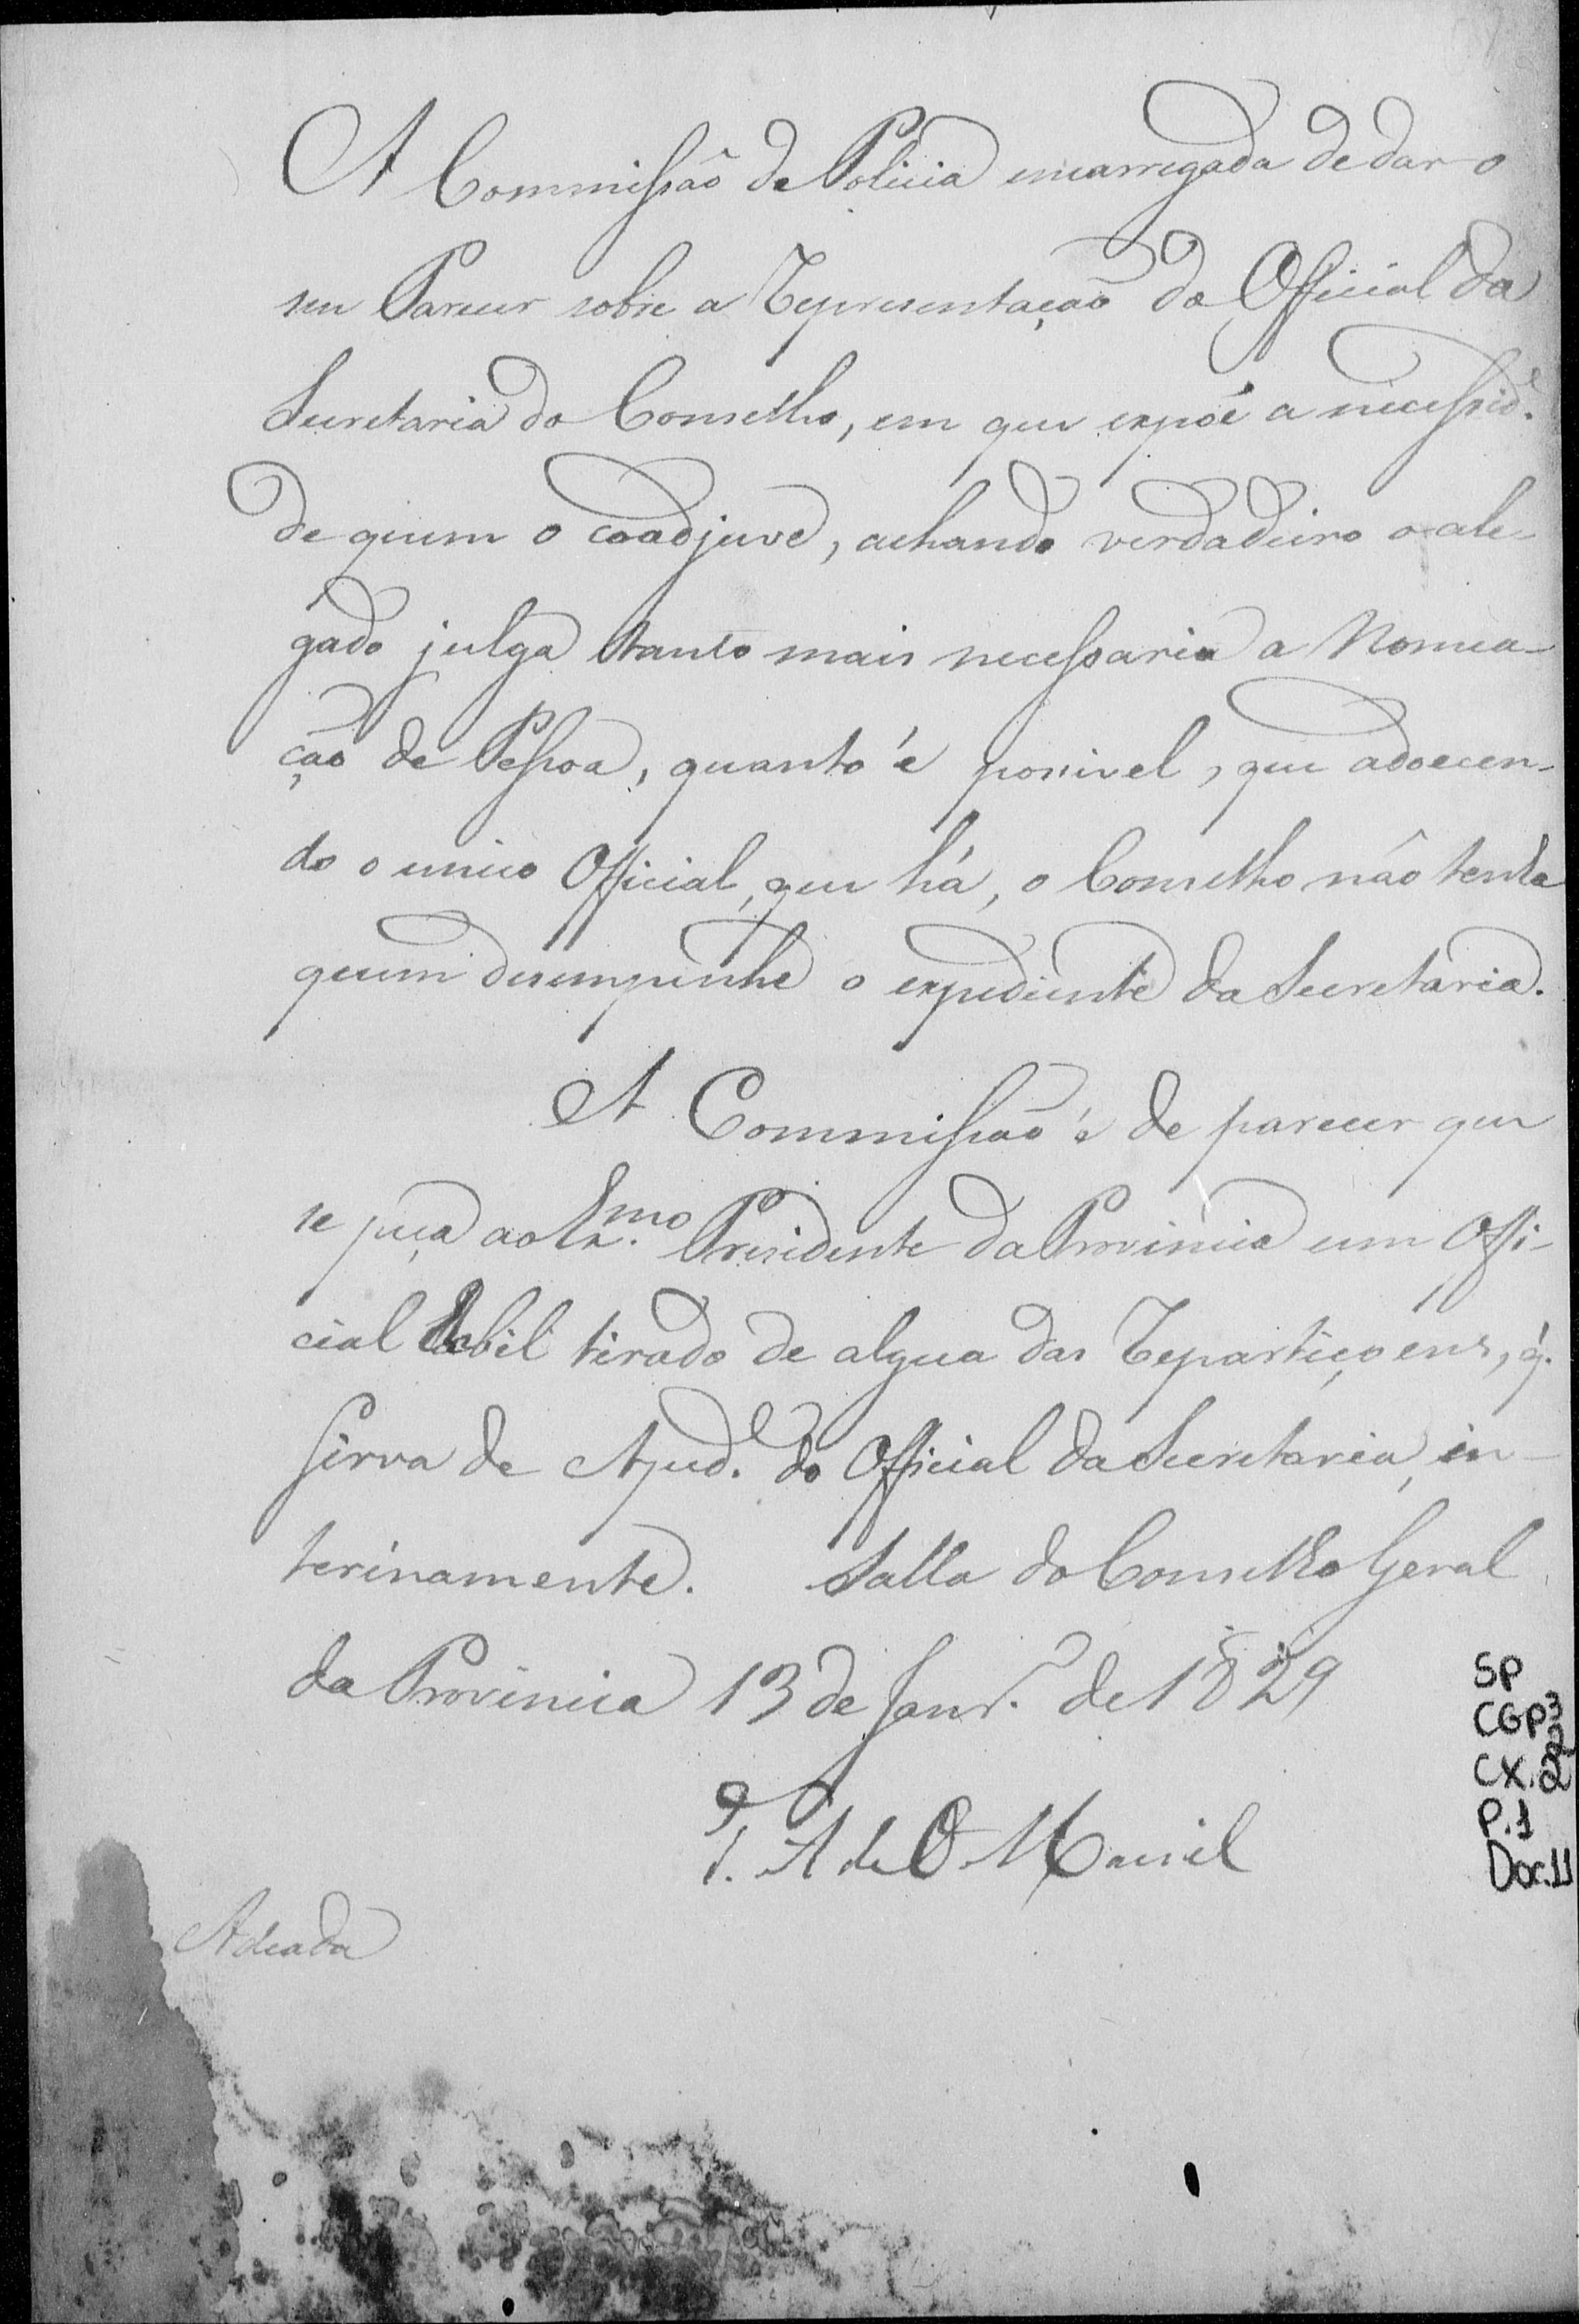 A Commissão de Policia encarregada de dar o
seu Parecer sobre a Representação do Official da
Secretaria do Conselho, em que expõe a necessid.e
de quem o coadjuve, achando verdadeiro o ale-
gado julga tanto mais necessaria a Nomea-
ção de Pessoa, quanto é possivel, que adoecen-
do o unico Official, que há, o Conselho não tenha
quem desempenhe o expediente da Secretaria.
A Commissão é de parecer que
se peça ao Ex.mo Presidente da Provincia um Offi-
cial habil tirado de algua das Repartiçoens, q.
sirva de Ajud.e do Official da Secretaria, in-
terinamente. Salla do Conselho Geral
da Provincia 13 de Janr.o de 1829
A de O Maciel
Adeada
SP
CGP3
CX.2
P.1
Doc.11